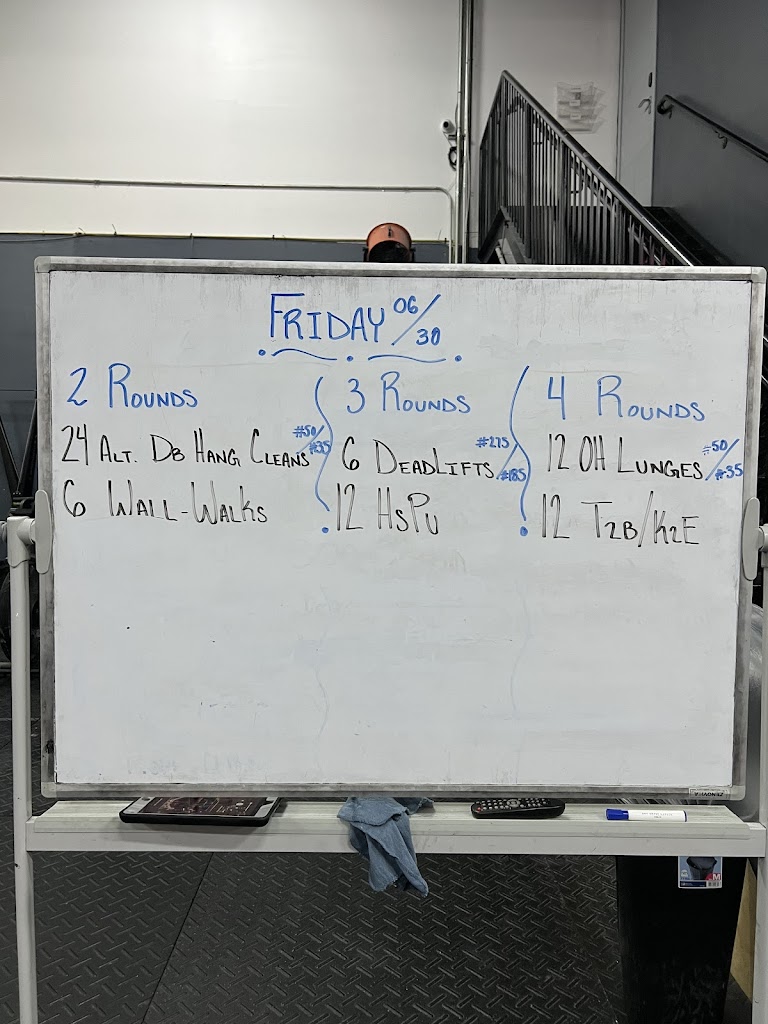 FRIDAY 06/30
2 ROUNDS
24 ALT. DB HANG CLEANS #50/#35
6 WALL-WALKS
3 ROUNDS
6 DEADLIFTS #275/#185
12 HSPU
4 ROUNDS
12 OH LUNGES #50/#35
12 T2B/K2E